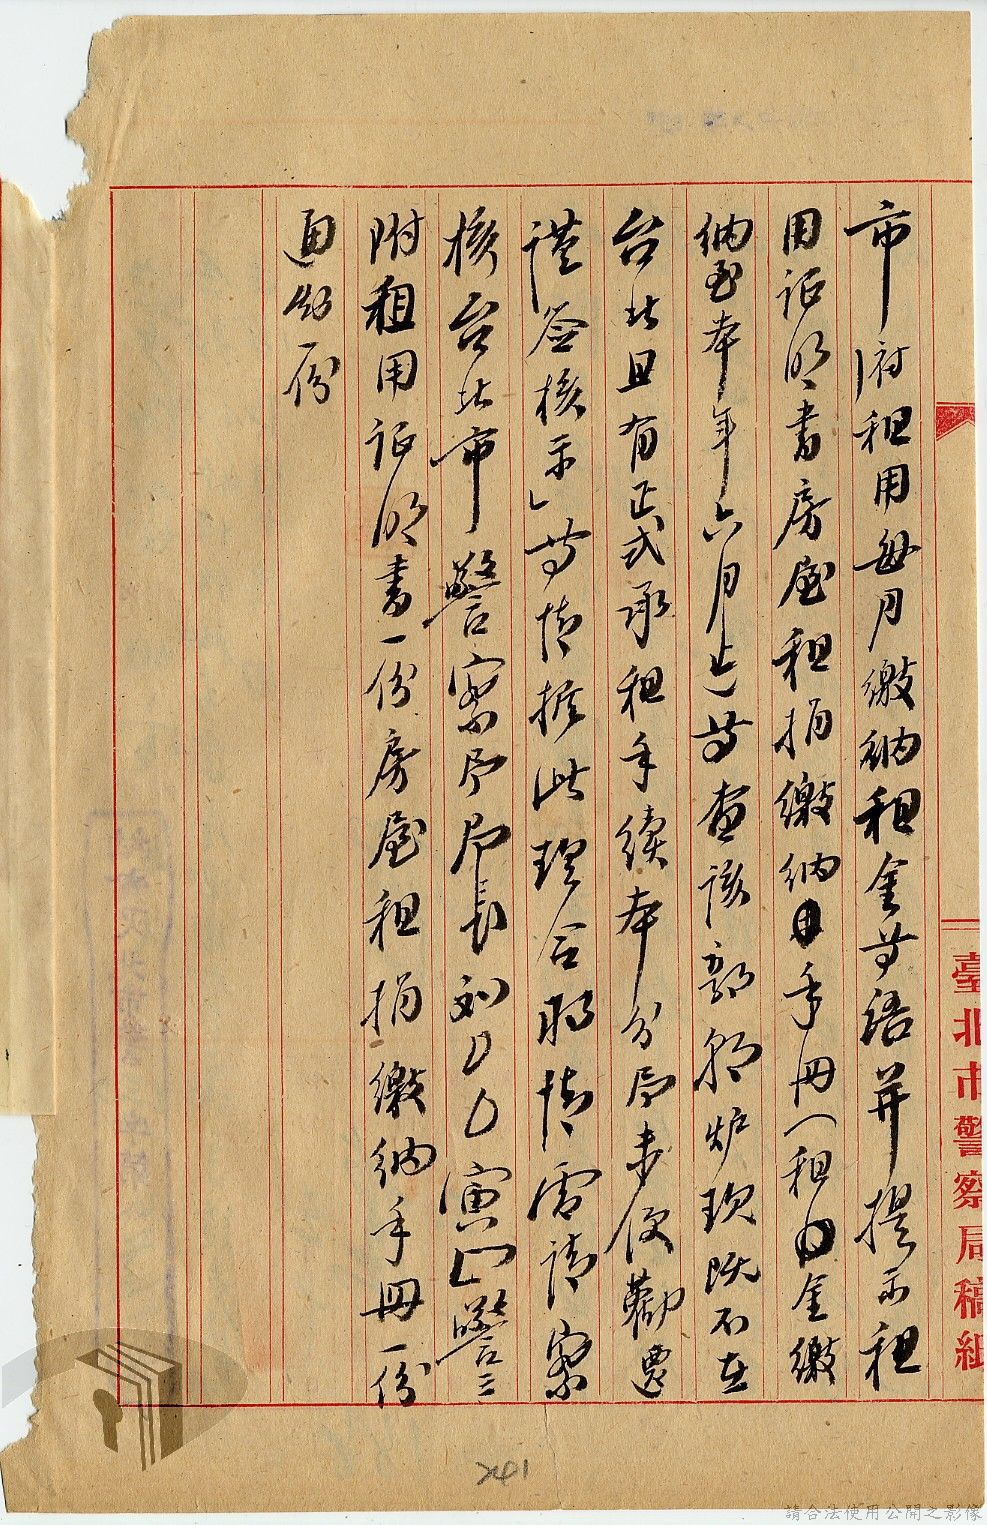 臺北市警察局稿紙
市府租用每月繳納租金等語并提示租
用证明書房屋租捐繳納手册(租金繳
納至本年六月止)等查該郭炉现既不在
台北且有正式承租手续本分局未便勸遷
谨签核示」等情據此理合將情電請察
核台北市警察局局長刘寅警三
附租用证明書一份房屋租捐繳納手冊一份
通知一份
241
請合法使用公開之影像